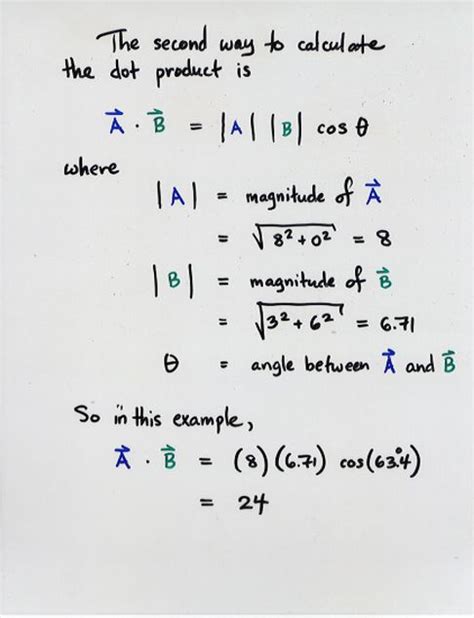 The second way to calculate
the dot product is
A⃗ · B⃗ = |A| |B| cos θ
where
|A| = magnitude of A⃗
= √(8² + 0²) = 8
|B| = magnitude of B⃗
= √(3² + 6²) = 6.71
θ = angle between A⃗ and B⃗
So in this example,
A⃗ · B⃗ = (8)(6.71) cos(63.4°)
= 24